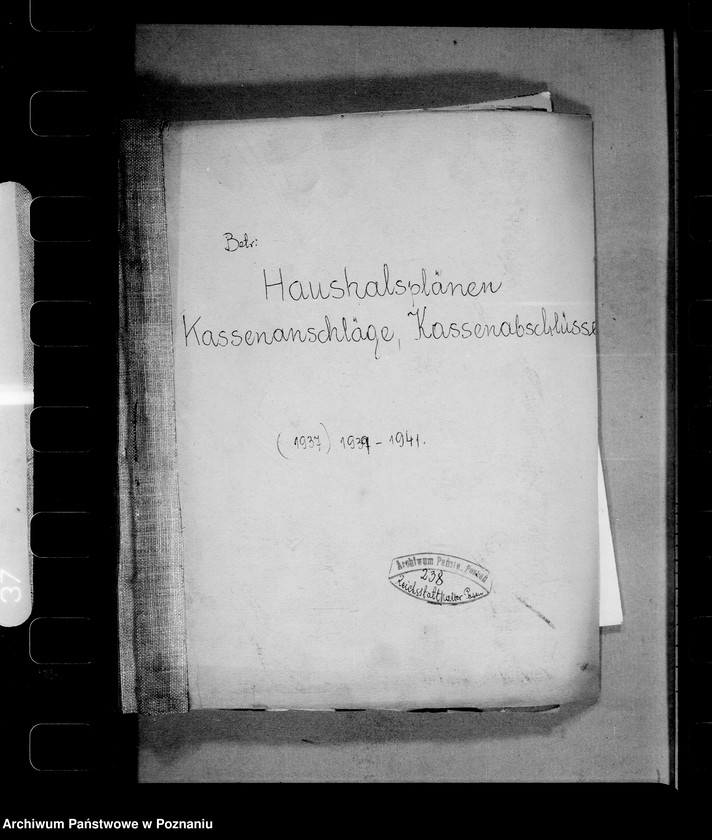 Betr:
Haushalsplänen
Kassenanschläge, Kassenabschlüsse
(1937) 1939 - 1941.
Archiwum Państw. Poznań
238
Reichsstatthalter Posen
37
Archiwum Państwowe w Poznaniu